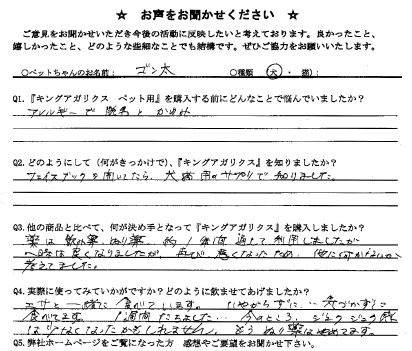 ☆ お声をお聞かせください ☆
ご意見をお聞かせいただき今後の活動に反映したいと考えております。良かったこと、
嬉しかったこと、どのような些細なことでも結構です。ぜひご協力をお願いいたします。
○ペットちゃんのお名前: ゴン太 ○種類 (犬・猫):
Q1.『キングアガリクス ペット用』を購入する前にどんなことで悩んでいましたか?
アレルギーで脱毛とかゆみ
Q2.どのようにして(何がきっかけで)、『キングアガリクス』を知りましたか?
フェイスブックを開いてたら、犬猫用のサプリで知りました。
Q3.他の商品と比べて、何が決め手となって『キングアガリクス』を購入しましたか?
薬は飲み薬、ぬり薬、約1年間通して利用しましたが
一時は良くなりましたが、再び悪くなったため、他に何かないか
考えてました。
Q4.実際に使ってみていかがですか?どのように飲ませてあげましたか?
エサと一緒に食べています。いやがらずに…気づかずに
食べてます。1週間たちました…今のところ、ジュクジュク
は少なくなったかもしれません。もうぬり薬は
Q5.弊社ホームページをご覧になった方 感想やご要望をお聞かせ下さい。